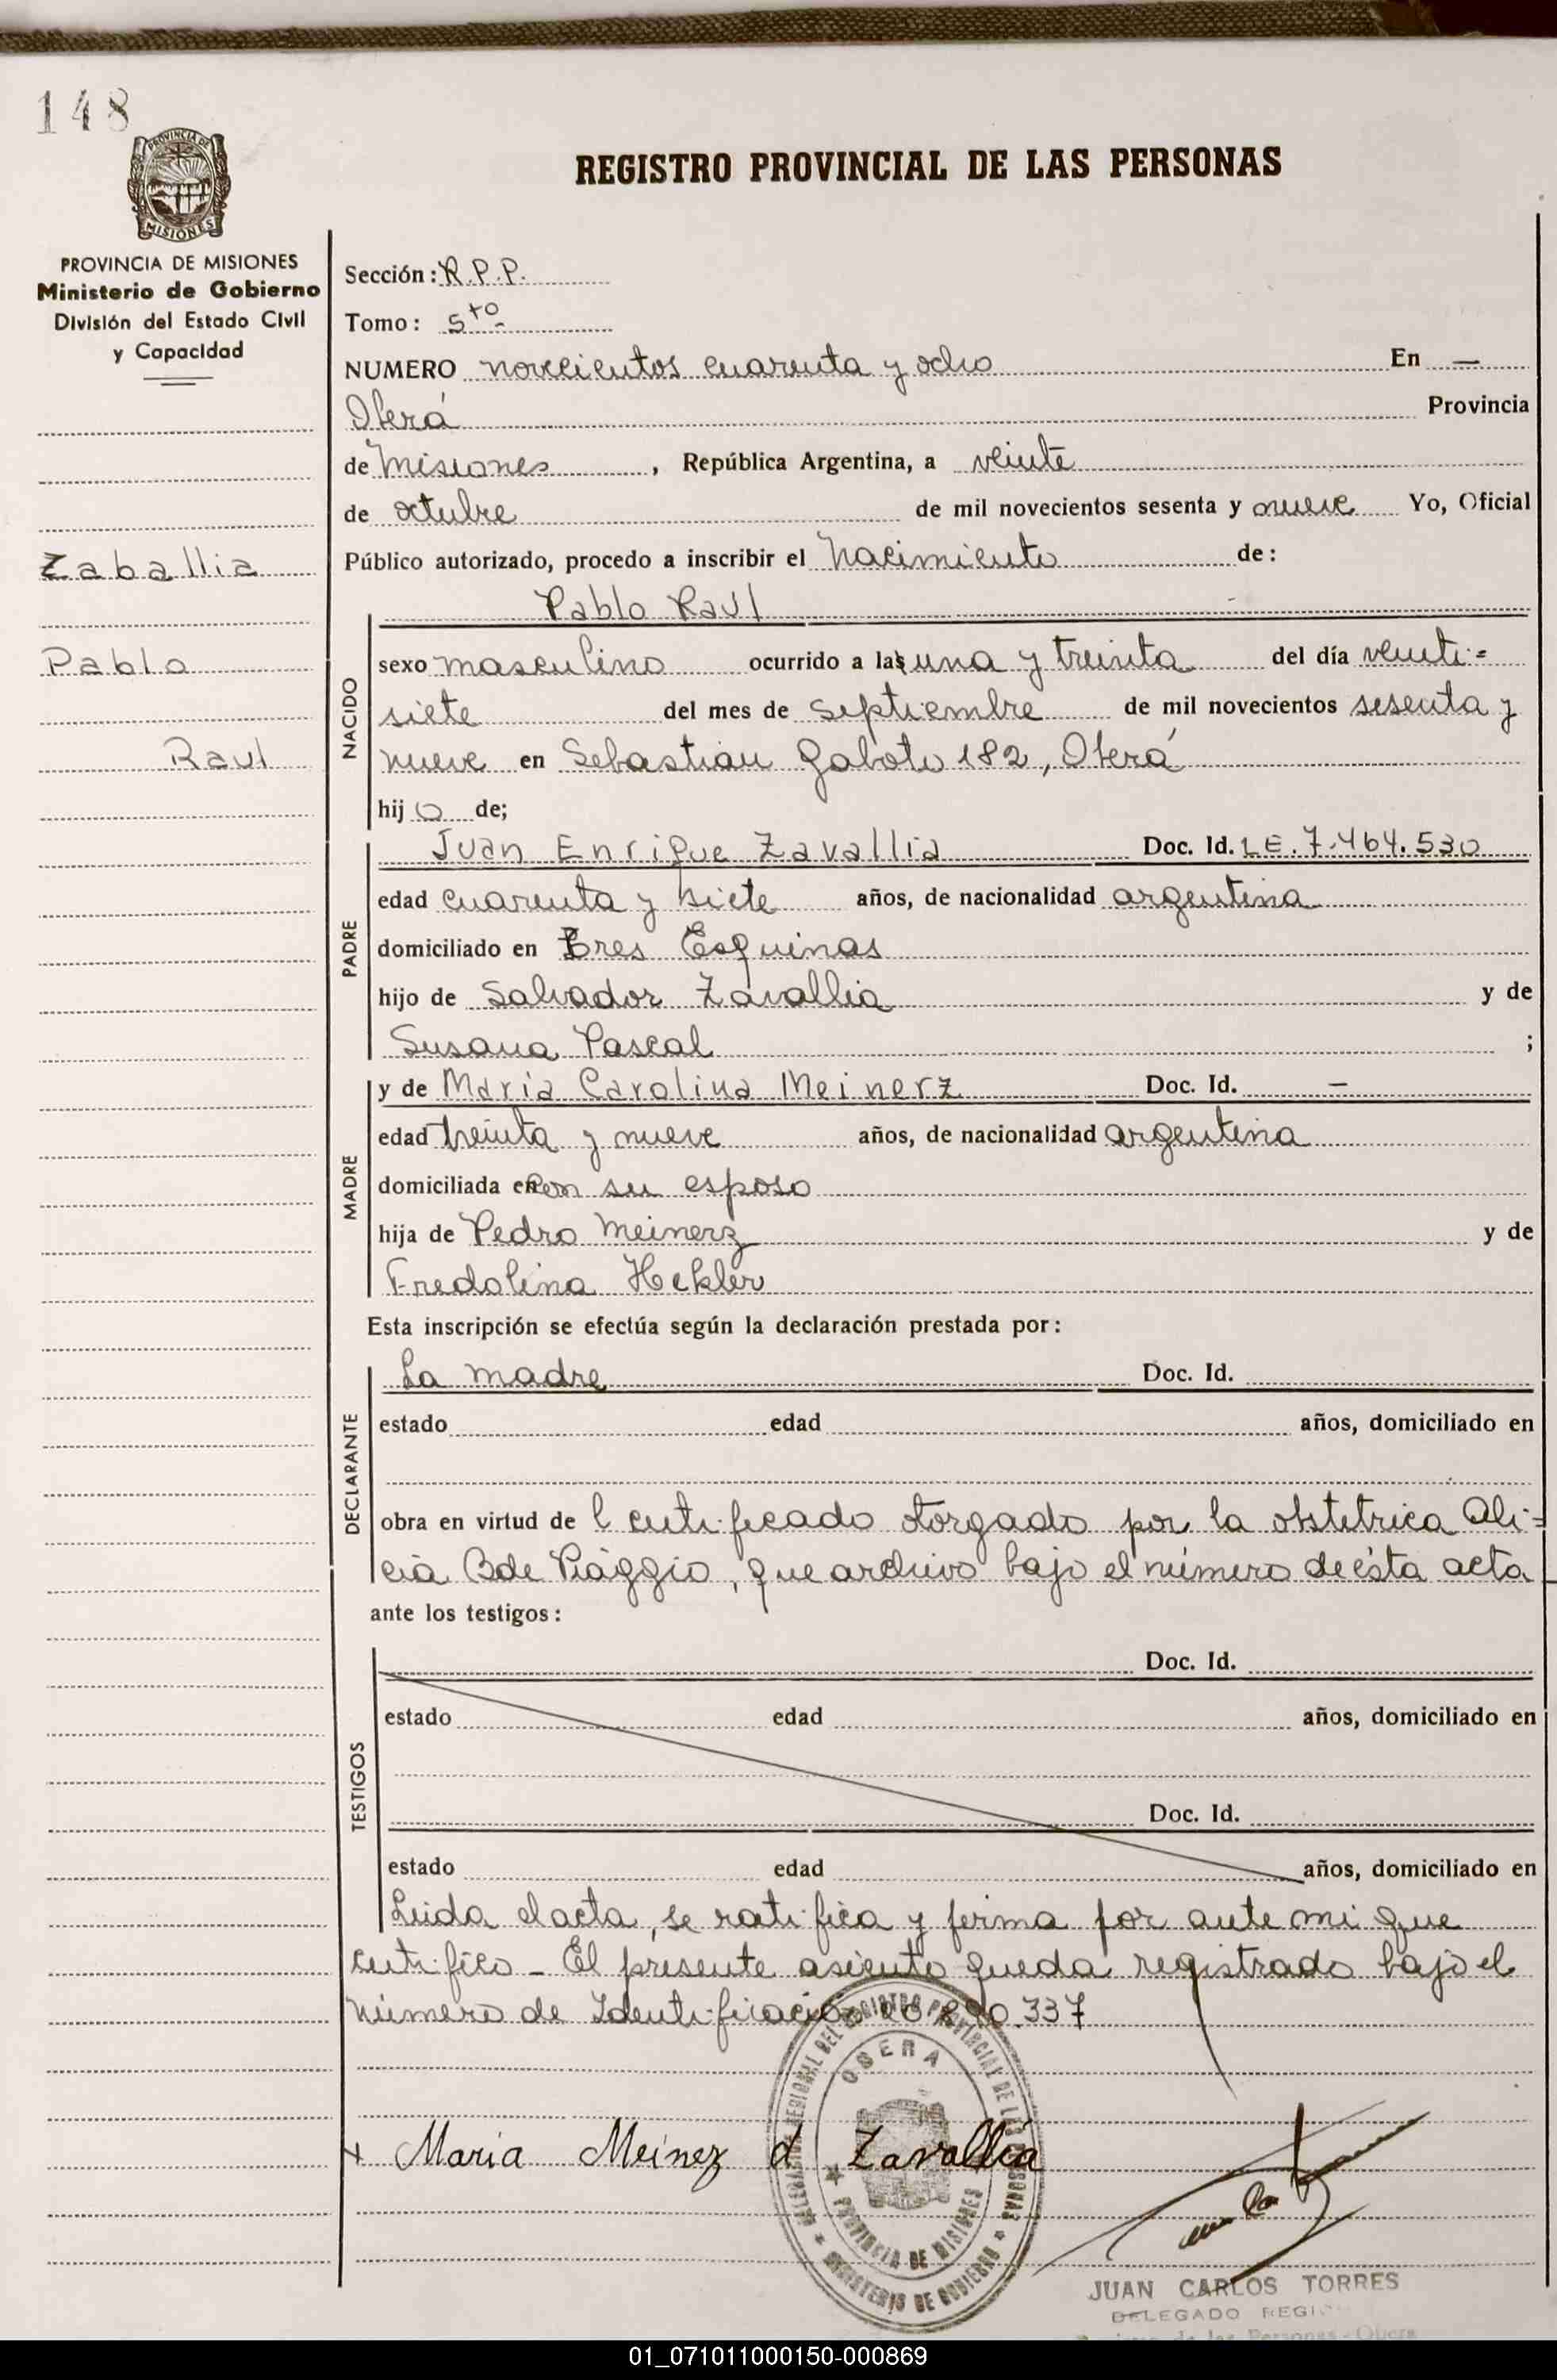 148
REGISTRO PROVINCIAL DE LAS PERSONAS
PROVINCIA DE
MISIONES
PROVINCIA DE MISIONES
Ministerio de Gobierno
División del Estado Civil
y Capacidad
Zaballia
Pablo
Raul
Sección: R.P.P.
Tomo: 5to
NUMERO novecientos cuarenta y ocho En —
Oberá Provincia
de Misiones, República Argentina, a veinte
de octubre de mil novecientos sesenta y nueve Yo, Oficial
Público autorizado, procedo a inscribir el Nacimiento de:
Pablo Raul
NACIDO
sexo masculino ocurrido a las una y treinta del día veinti=
siete del mes de septiembre de mil novecientos sesenta y
nueve en Sebastian Gaboto 182, Oberá
hijo de;
PADRE
Juan Enrique Zavallia Doc. Id. L.E. 7.464.530
edad cuarenta y siete años, de nacionalidad argentina
domiciliado en Tres Esquinas
hijo de Salvador Zavallia y de
Susana Pascal ;
MADRE
y de María Carolina Meinerz Doc. Id. —
edad treinta y nueve años, de nacionalidad argentina
domiciliada en con su esposo
hija de Pedro Meinerz y de
Fredolina Hekler
Esta inscripción se efectúa según la declaración prestada por:
DECLARANTE
La madre Doc. Id.
estado edad años, domiciliado en
obra en virtud de l certificado otorgado por la obstetrica Ali=
cia B de Piaggio, que archivo bajo el número de ésta acta
ante los testigos:
TESTIGOS
Doc. Id.
estado edad años, domiciliado en
Doc. Id.
estado edad años, domiciliado en
Leida el acta, se ratifica y firma por ante mi que
certifico - El presente asiento queda registrado bajo el
número de Identificación 337
DELEGACION REGIONAL DEL REGISTRO PROVINCIAL DE LAS PERSONAS
OBERA
PROVINCIA DE MISIONES
MINISTERIO DE GOBIERNO
Maria Meinez d Zavallia
JUAN CARLOS TORRES
DELEGADO
de las Personas - Obera
01_071011000150-000869